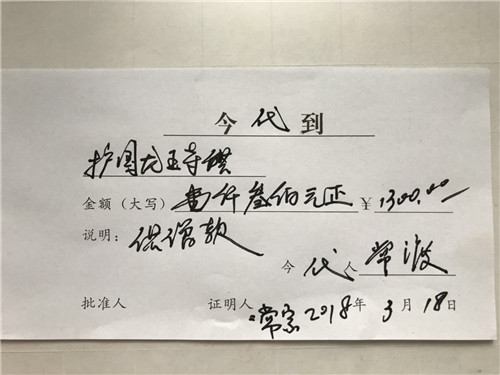 今代到
护国龙王寺供
金额（大写）壹仟叁佰元正 ¥1300.00
说明：供僧款
今代人 常波
批准人 证明人 常宗 2018年3月18日